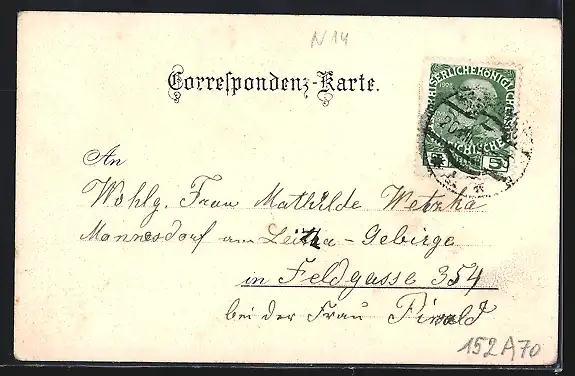 N 14
Correspondenz-Karte.
KAISERLICHE KÖNIGLICHE
1908
5
An
Wohlg. Frau Mathilde Wetzka
Mannersdorf am Leitha-Gebirge
in Feldgasse 354
bei der Frau
152A70